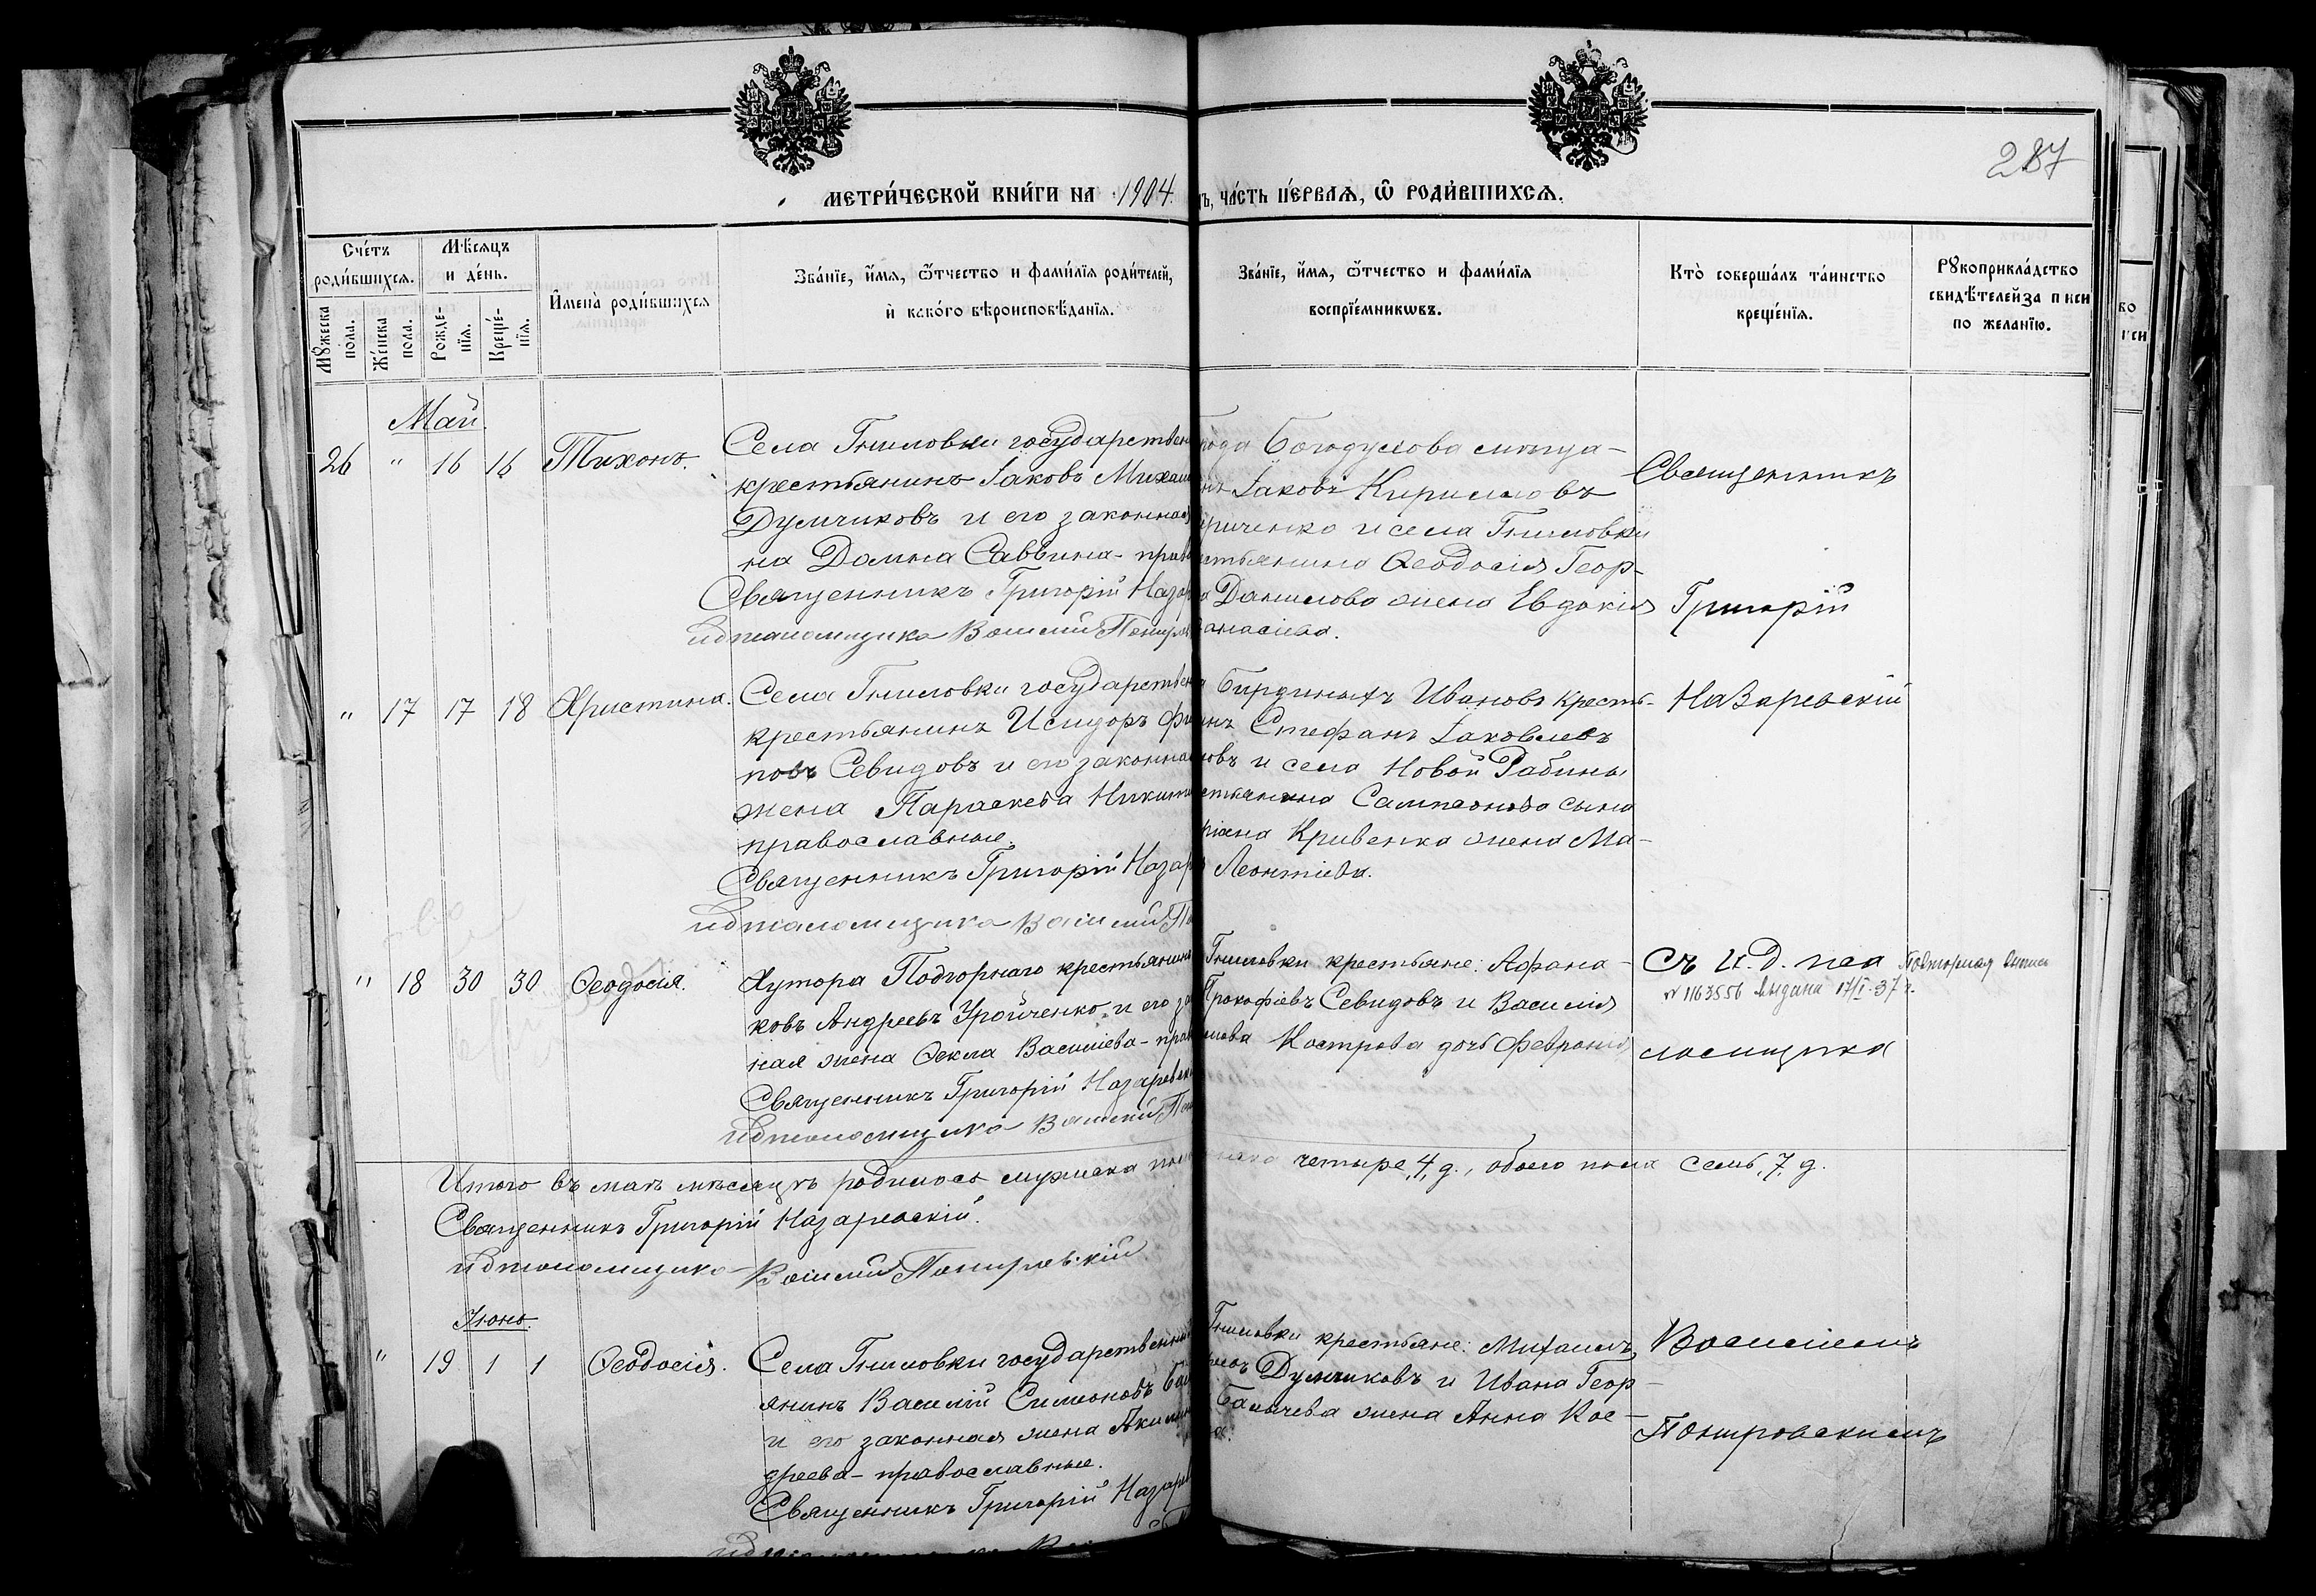 287
МЕТРИ́ЧЕСКОЙ КНИ́ГИ НА 1904 ЧА́СТЬ ПЕ́РВАѦ, Ѽ РОДИ́ВШИХСѦ.
Сче́тъ роди́вшихся.
Мѣ́сяцъ и де́нь.
Мꙋ́жеска по́ла.
Же́нска пола.
Рожде́-нїя.
Креще́-нїя.
И҆мена̀ роди́вшихся
Зва́нїе, и҆́мя, ѻ҆́тчество и фами́лїя роди́телей,
и҆ како́го вѣроисповѣ́данїя.
Зва́нїе, и҆́мя, ѻ҆́тчество и фами́лїя
воспрїе́мникѡвъ.
Кто̀ соверша́лъ та́инство
креще́нїя.
Рꙋкоприкла́дство
свидѣ́телей
по жела́нїю.
Май.
26 " 16 16 Тихонъ.
Села Гниловки государствен
крестьянинъ Іаковъ Михаи
Думчиковъ и его законная
на Домна Саввина - прав
Священникъ Григорій Назар
И д псаломщика Василій Покров
Богодухова мѣща-
Іаковъ Кирилловъ
и села Гниловки
Ѳеодосія Геор-
Данилова жена Евдокія
Священникъ
Григорій
Назаревскій
" 17 17 18 Христина.
Села Гниловки государствен
крестьянинъ Исидоръ Фи
повъ Севидовъ и его законная
жена Параскева Никит
православные.
Священникъ Григорій Назар
И д псаломщика Василій По
Ивановъ кресть-
Стефанъ Іаковлевъ
и села Новой Рябины
Сампсонова сына
Кривенка жена Ма-
Леонтіева.
" 18 30 30 Ѳеодосія.
Хутора Подгорнаго крестьянинъ
ковъ Андреевъ Уройченко и его за
ная жена Ѳекла Василіева - прав
Священникъ Григорій Назаревск
И д псаломщика Василій По
Гниловки крестьяне: Афана-
Прокофіевъ Севидовъ и Василія
Кострова дочь Февронія
Съ И. Д. пса
ломщика
Повторная
№ 1163556 выдана 17/I-37 г.
Итого въ маѣ мѣсяцѣ родилось мужеска пола четыре, 4, д., обоего пола семь, 7, д.
Священникъ Григорій Назаревскій.
И д псаломщика Василій Покровскій
Іюнь.
" 19 1 1 Ѳеодосія.
Села Гниловки государственный
янинъ Василій Симеоновъ Ба
и его законная жена Акилин
дреева - православные.
Священникъ Григорій Назарев
Гниловки крестьяне: Михаилъ
Думчиковъ и Ивана Геор-
Балычева жена Анна Кос-
Василіемъ
Покровскимъ